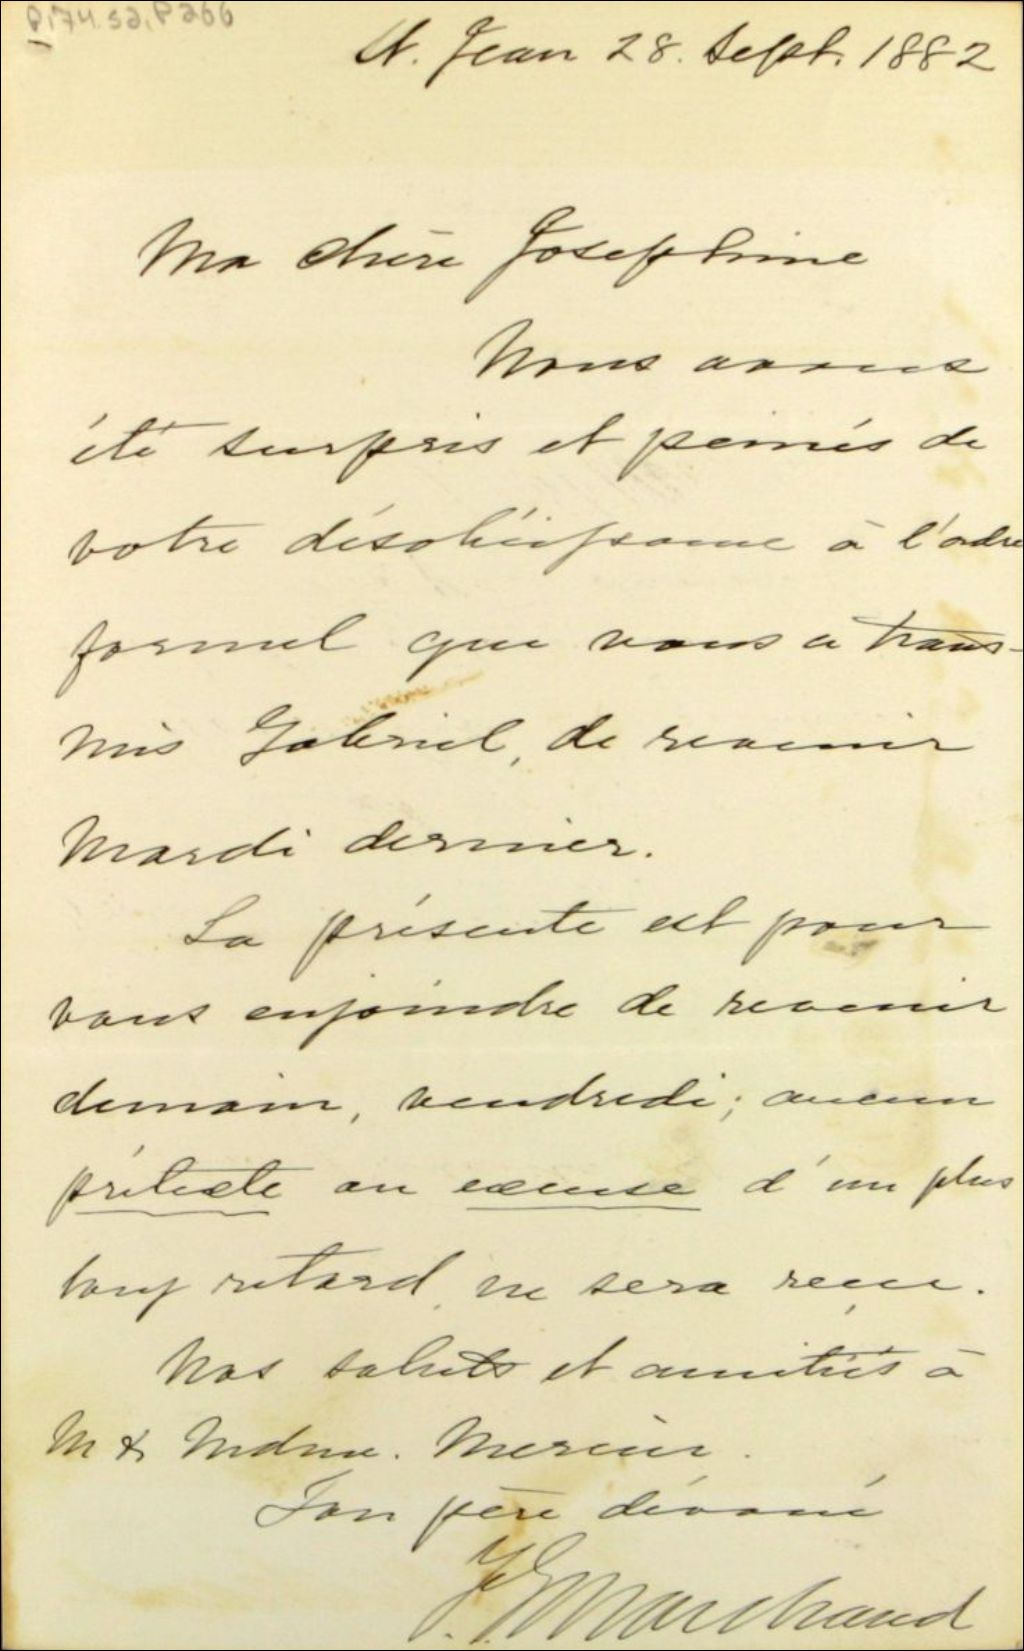 P174.S2,P266
St. Jean 28. Sept. 1882
Ma chère Josephine
Nous avons
été surpris et peinés de
votre désobéissance à l'ordre
formel que vous a trans-
mis Gabriel, de revenir
Mardi dernier.
La présente est pour
vous enjoindre de revenir
demain, vendredi; aucun
prétexte ou excuse d'un plus
long retard, ne sera reçu.
Nos saluts et amitiés à
M & Mdme. Mercier.
Ton père dévoué
F. G. Marchand